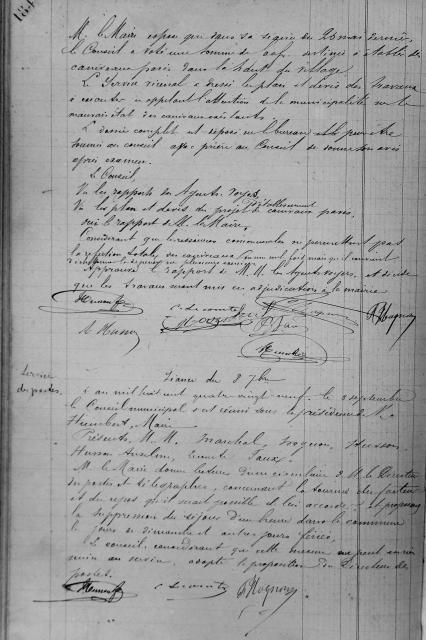 184
M. le Maire expose que dans sa séance du 26 mai dernier,
le Conseil a voté une somme de destinée à établir des
caniveaux pavés dans le haut du village
Le Service vicinal a dressé les plan et devis des travaux
à exécuter en appelant l'attention de la municipalité sur le
mauvais état des caniveaux existants.
Le dossier complet est déposé sur le bureau et le
soumis au conseil avec prière au Conseil de donner son avis
après examen.
Le Conseil,
Vu les rapports des Agents Voyers,
Vu les plan et devis du projet d'établissement de caniveaux pavés,
ouï le rapport de M. le Maire,
Considérant que les ressources communales ne permettent pas
la réfection totale des caniveaux
Approuve le rapport de M.M. les Agents voyers, et décide
que les travaux seront mis en adjudication à la mairie
Humbert
C. Lecomte
Hognon
A. Husson
Service
des postes.
Séance du 8 7bre
L'an mil huit cent quatre vingt neuf, le 8 septembre
le Conseil municipal s'est réuni sous la présidence de M.
Humbert, Maire
Présents, M.M. Marchal, Hognon, Husson,
Husson Anselme,
M. le Maire donne lecture d'une circulaire de M. le Directeur
des postes et télégraphes, concernant la tournée du facteur
et du repos qu'il serait possible de lui accorder, et propose
la suppression du séjour d'une heure dans la commune
les jours de dimanche et autres jours fériés.
Le conseil, considérant que cette mesure ne peut en rien
nuire au service, adopte la proposition du Directeur des
postes.
Humbert
C. Lecomte
Hognon